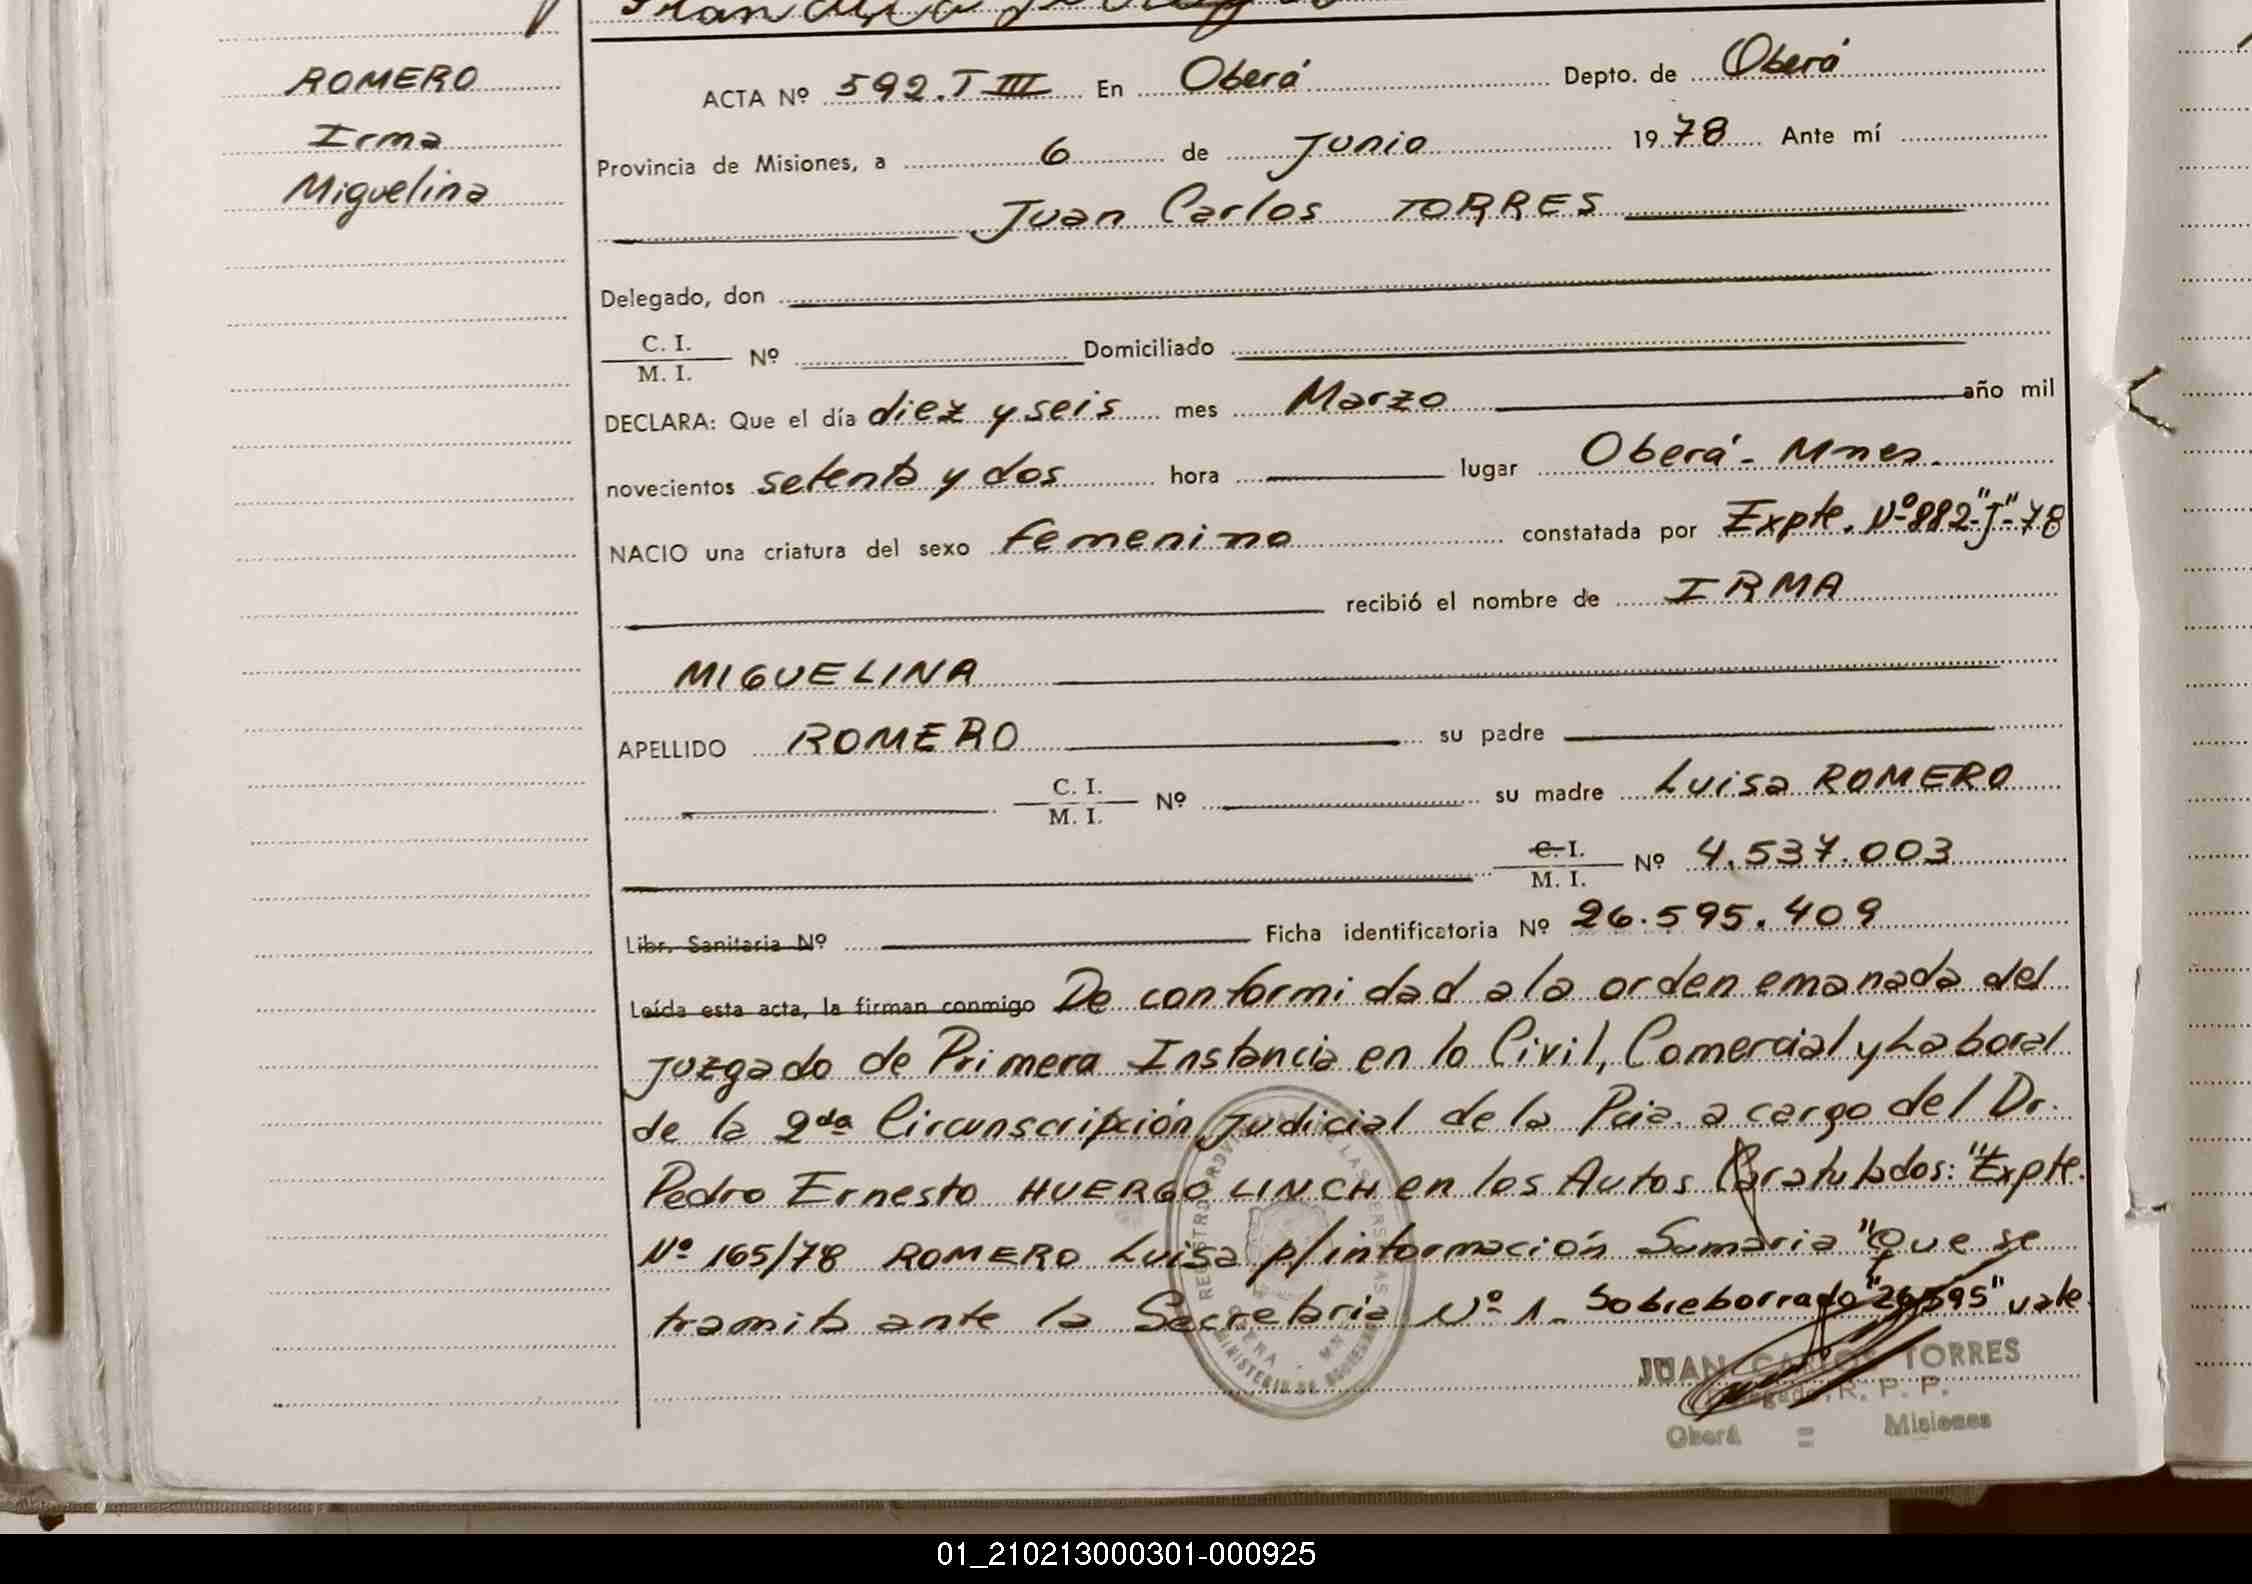 ROMERO
Irma
Miguelina
ACTA Nº 592.T III En Oberá Depto. de Oberá
Provincia de Misiones, a 6 de Junio 1978 Ante mí
Juan Carlos TORRES
Delegado, don
C. I.
M. I. Nº Domiciliado
DECLARA: Que el día diez y seis mes Marzo año mil
novecientos setenta y dos hora lugar Oberá - Mnes.
NACIO una criatura del sexo femenino constatada por Expte. Nº 882-"J"-78
recibió el nombre de IRMA
MIGUELINA
APELLIDO ROMERO su padre
C. I.
M. I. Nº su madre Luisa ROMERO
C. I.
M. I. Nº 4.537.003
Libr. Sanitaria Nº Ficha identificatoria Nº 26.595.409
Leída esta acta, la firman conmigo De conformidad a la orden emanada del
Juzgado de Primera Instancia en lo Civil, Comercial y Laboral
de la 2da Circunscripción Judicial de la Pcia. a cargo del Dr.
Pedro Ernesto HUERGO LINCH en los Autos Caratulados: "Expte.
Nº 165/78 ROMERO Luisa p/información Sumaria" Que se
tramita ante la Secretaria Nº 1. Sobreborrado "26595" vale.
JUAN CARLOS TORRES
Delegado, R. P. P.
Oberá = Misiones
01_210213000301-000925